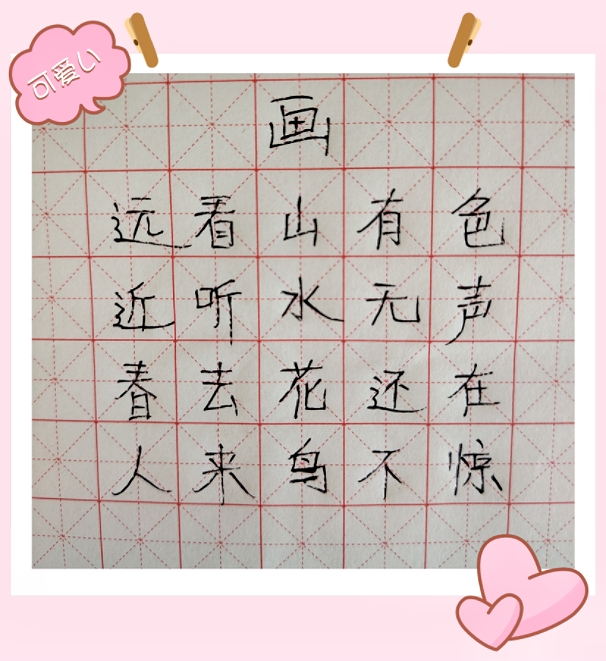 可爱い
画
远看山有色
近听水无声
春去花还在
人来鸟不惊